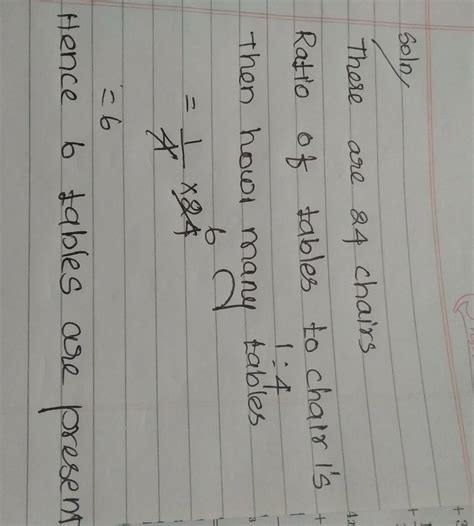 Soln
There are 24 chairs
Ratio of tables to chair is
1:4
Then how many tables
= 1/4 × 24 6
= 6
Hence 6 tables are present